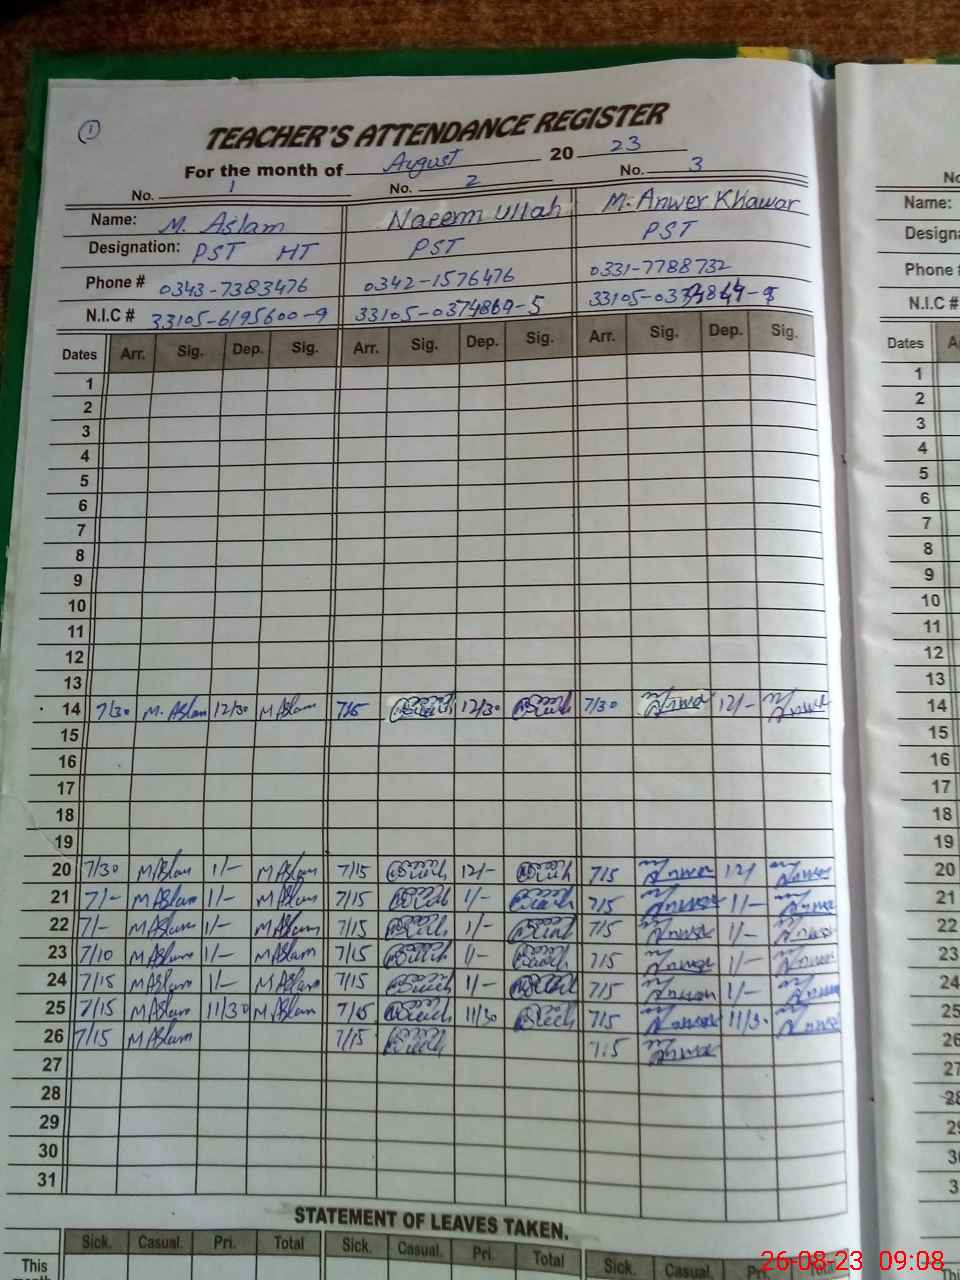 1
TEACHER'S ATTENDANCE REGISTER
For the month of August 20 23
No. 1 No. 2 No. 3
Name: M. Aslam Naeem Ullah M. Anwer Khawar
Designation: PST HT PST PST
Phone # 0343-7383476 0342-1576476 0331-7788732
N.I.C # 33105-6195600-9 33105-0374869-5
Dates Arr. Sig. Dep. Sig. Arr. Sig. Dep. Sig. Arr. Sig. Dep. Sig.
1
2
3
4
5
6
7
8
9
10
11
12
13
14 7/30 M. Aslam 12/30 M Aslam 7/15 12/30 7/30 Anwer 12/- Anwer
15
16
17
18
19
20 7/30 M Aslam 1/- M Aslam 7/15 12/- 7/15 Anwer 12/ Anwer
21 7/- M Aslam 1/- M Aslam 7/15 1/- 7/15 Anwer 1/- Anwer
22 7/- M Aslam 1/- M Aslam 7/15 1/- 7/15 Anwer 1/- Anwer
23 7/10 M Aslam 1/- M Aslam 7/15 1/- 7/15 Anwer 1/- Anwer
24 7/15 M Aslam 1/- M Aslam 7/15 1/- 7/15 Anwer 1/- Anwer
25 7/15 M Aslam 11/30 M Aslam 7/15 11/30 7/15 Anwer 11/3. Anwer
26 7/15 M Aslam 7/15 7/15 Anwer
27
28
29
30
31
STATEMENT OF LEAVES TAKEN.
Sick. Casual. Pri. Total Sick. Casual. Pri. Total Sick. Casual. Pri. Total
This
26-08-23 09:08
Name:
Phone
N.I.C #
Dates
1
2
3
4
5
6
7
8
9
10
11
12
13
14
15
16
17
18
19
20
21
22
23
24
25
26
27
28
29